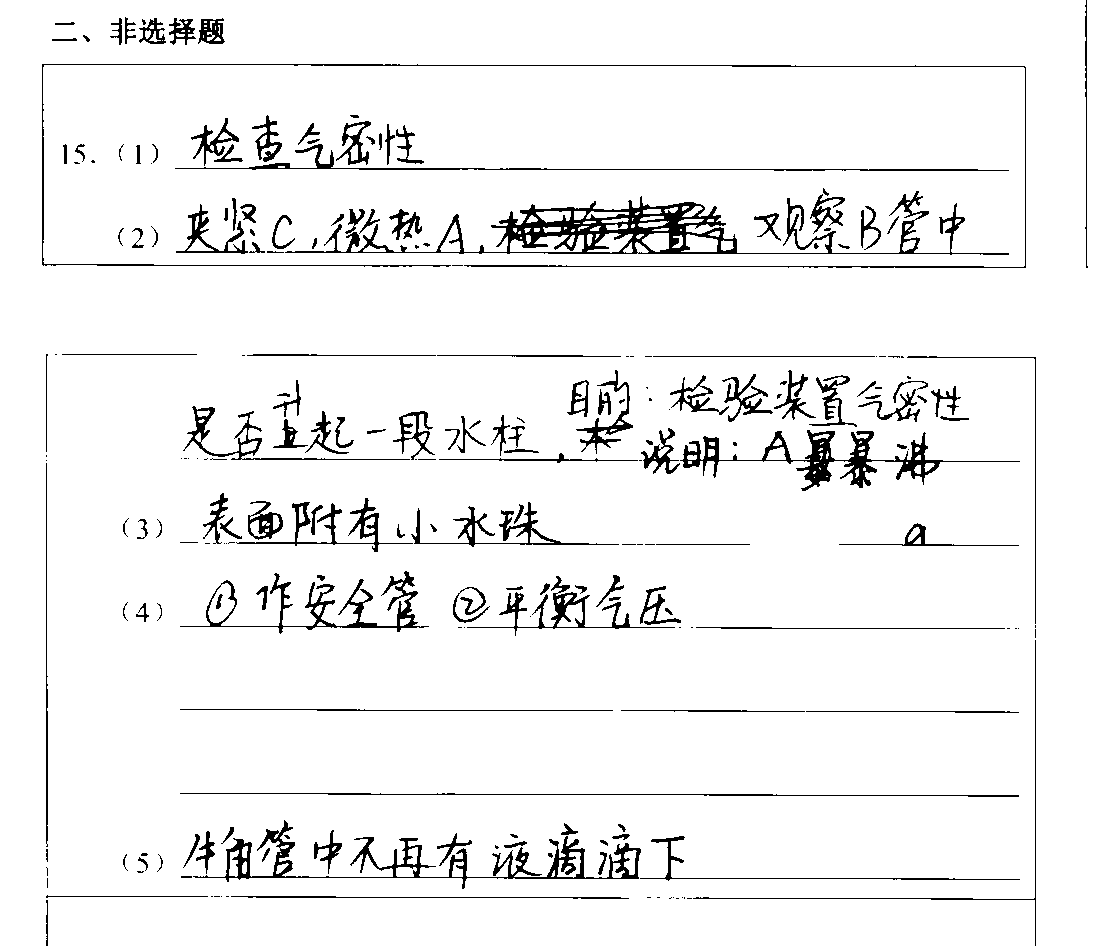 二、非选择题
15.（1） 检查气密性
（2） 夹紧C，微热A，观察B管中
目的：检验装置气密性
是否升起一段水柱， 说明：A暴沸
（3） 表面附有小水珠 a
（4） ①作安全管 ②平衡气压
（5） 牛角管中不再有液滴滴下